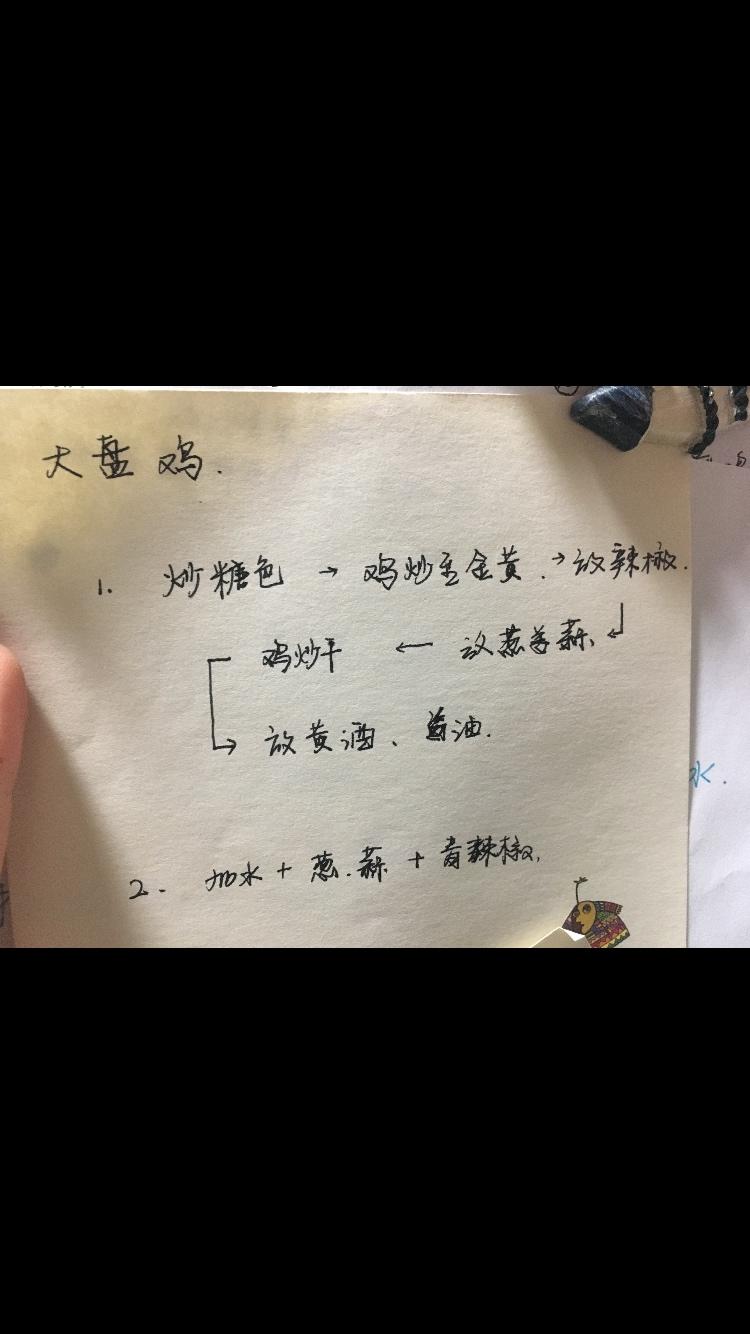 大盘鸡.
1. 炒糖色 → 鸡炒至金黄.→放辣椒.
放葱姜蒜、
← 鸡炒干
→ 放黄酒、酱油.
水.
2. 加水 + 葱.蒜 + 青辣椒,